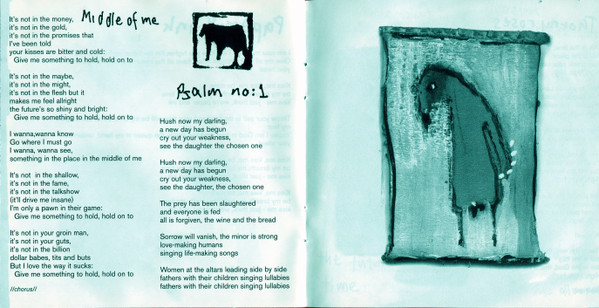 Middle of me
It's not in the money,
it's not in the gold,
it's not in the promises that
I've been told
your kisses are bitter and cold:
Give me something to hold, hold on to
It's not in the maybe,
it's not in the might,
it's not in the flesh but it
makes me feel allright
the future's so shiny and bright:
Give me something to hold, hold on to
I wanna,wanna know
Go where I must go
I wanna, wanna see,
something in the place in the middle of me
It's not in the shallow,
it's not in the fame,
it's not in the talkshow
(it'll drive me insane)
I'm only a pawn in their game:
Give me something to hold, hold on to
It's not in your groin man,
it's not in your guts,
it's not in the billion
dollar babes, tits and buts
But I love the way it sucks:
Give me something to hold, hold on to
//chorus//
Psalm no:1
Hush now my darling,
a new day has begun
cry out your weakness,
see the daughter the chosen one
Hush now my darling,
a new day has begun
cry out your weakness,
see the daughter, the chosen one
The prey has been slaughtered
and everyone is fed
all is forgiven, the wine and the bread
Sorrow will vanish, the minor is strong
love-making humans
singing life-making songs
Women at the altars leading side by side
fathers with their children singing lullabies
fathers with their children singing lullabies